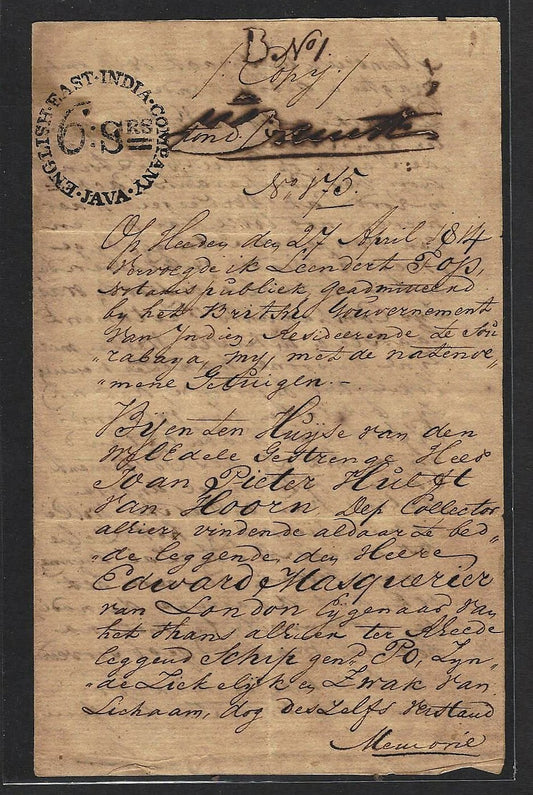 B N° 1
/: Copy :/
ENGLISH · EAST · INDIA · COMPANY · JAVA ·
6: SRS
N° 175
Op Heeden den 27 April 1814
Vervoegde ik Leendert Fop,
Notaris publiek geadmitteerd
by het Britsche Gouvernement
van Indien, Resideerende te Sou
"rabaya, my met de natenoe"
"mene Getuigen.—
Byen ten Huyse van den
WelEdele Gestrenge Heer
Ivan Pieter Hulft
van Hoorn Dep Collector
alhier, vindende aldaar te bed"
"de leggende, den Heere
Edward Masquerier
van London Eygenaar van
het thans alhier ter Rheede
leggend Schip gend Po, Zyn"
"de Ziekelyk en Zwak van
Lichaam, dog deszelfs verstand
Memorie